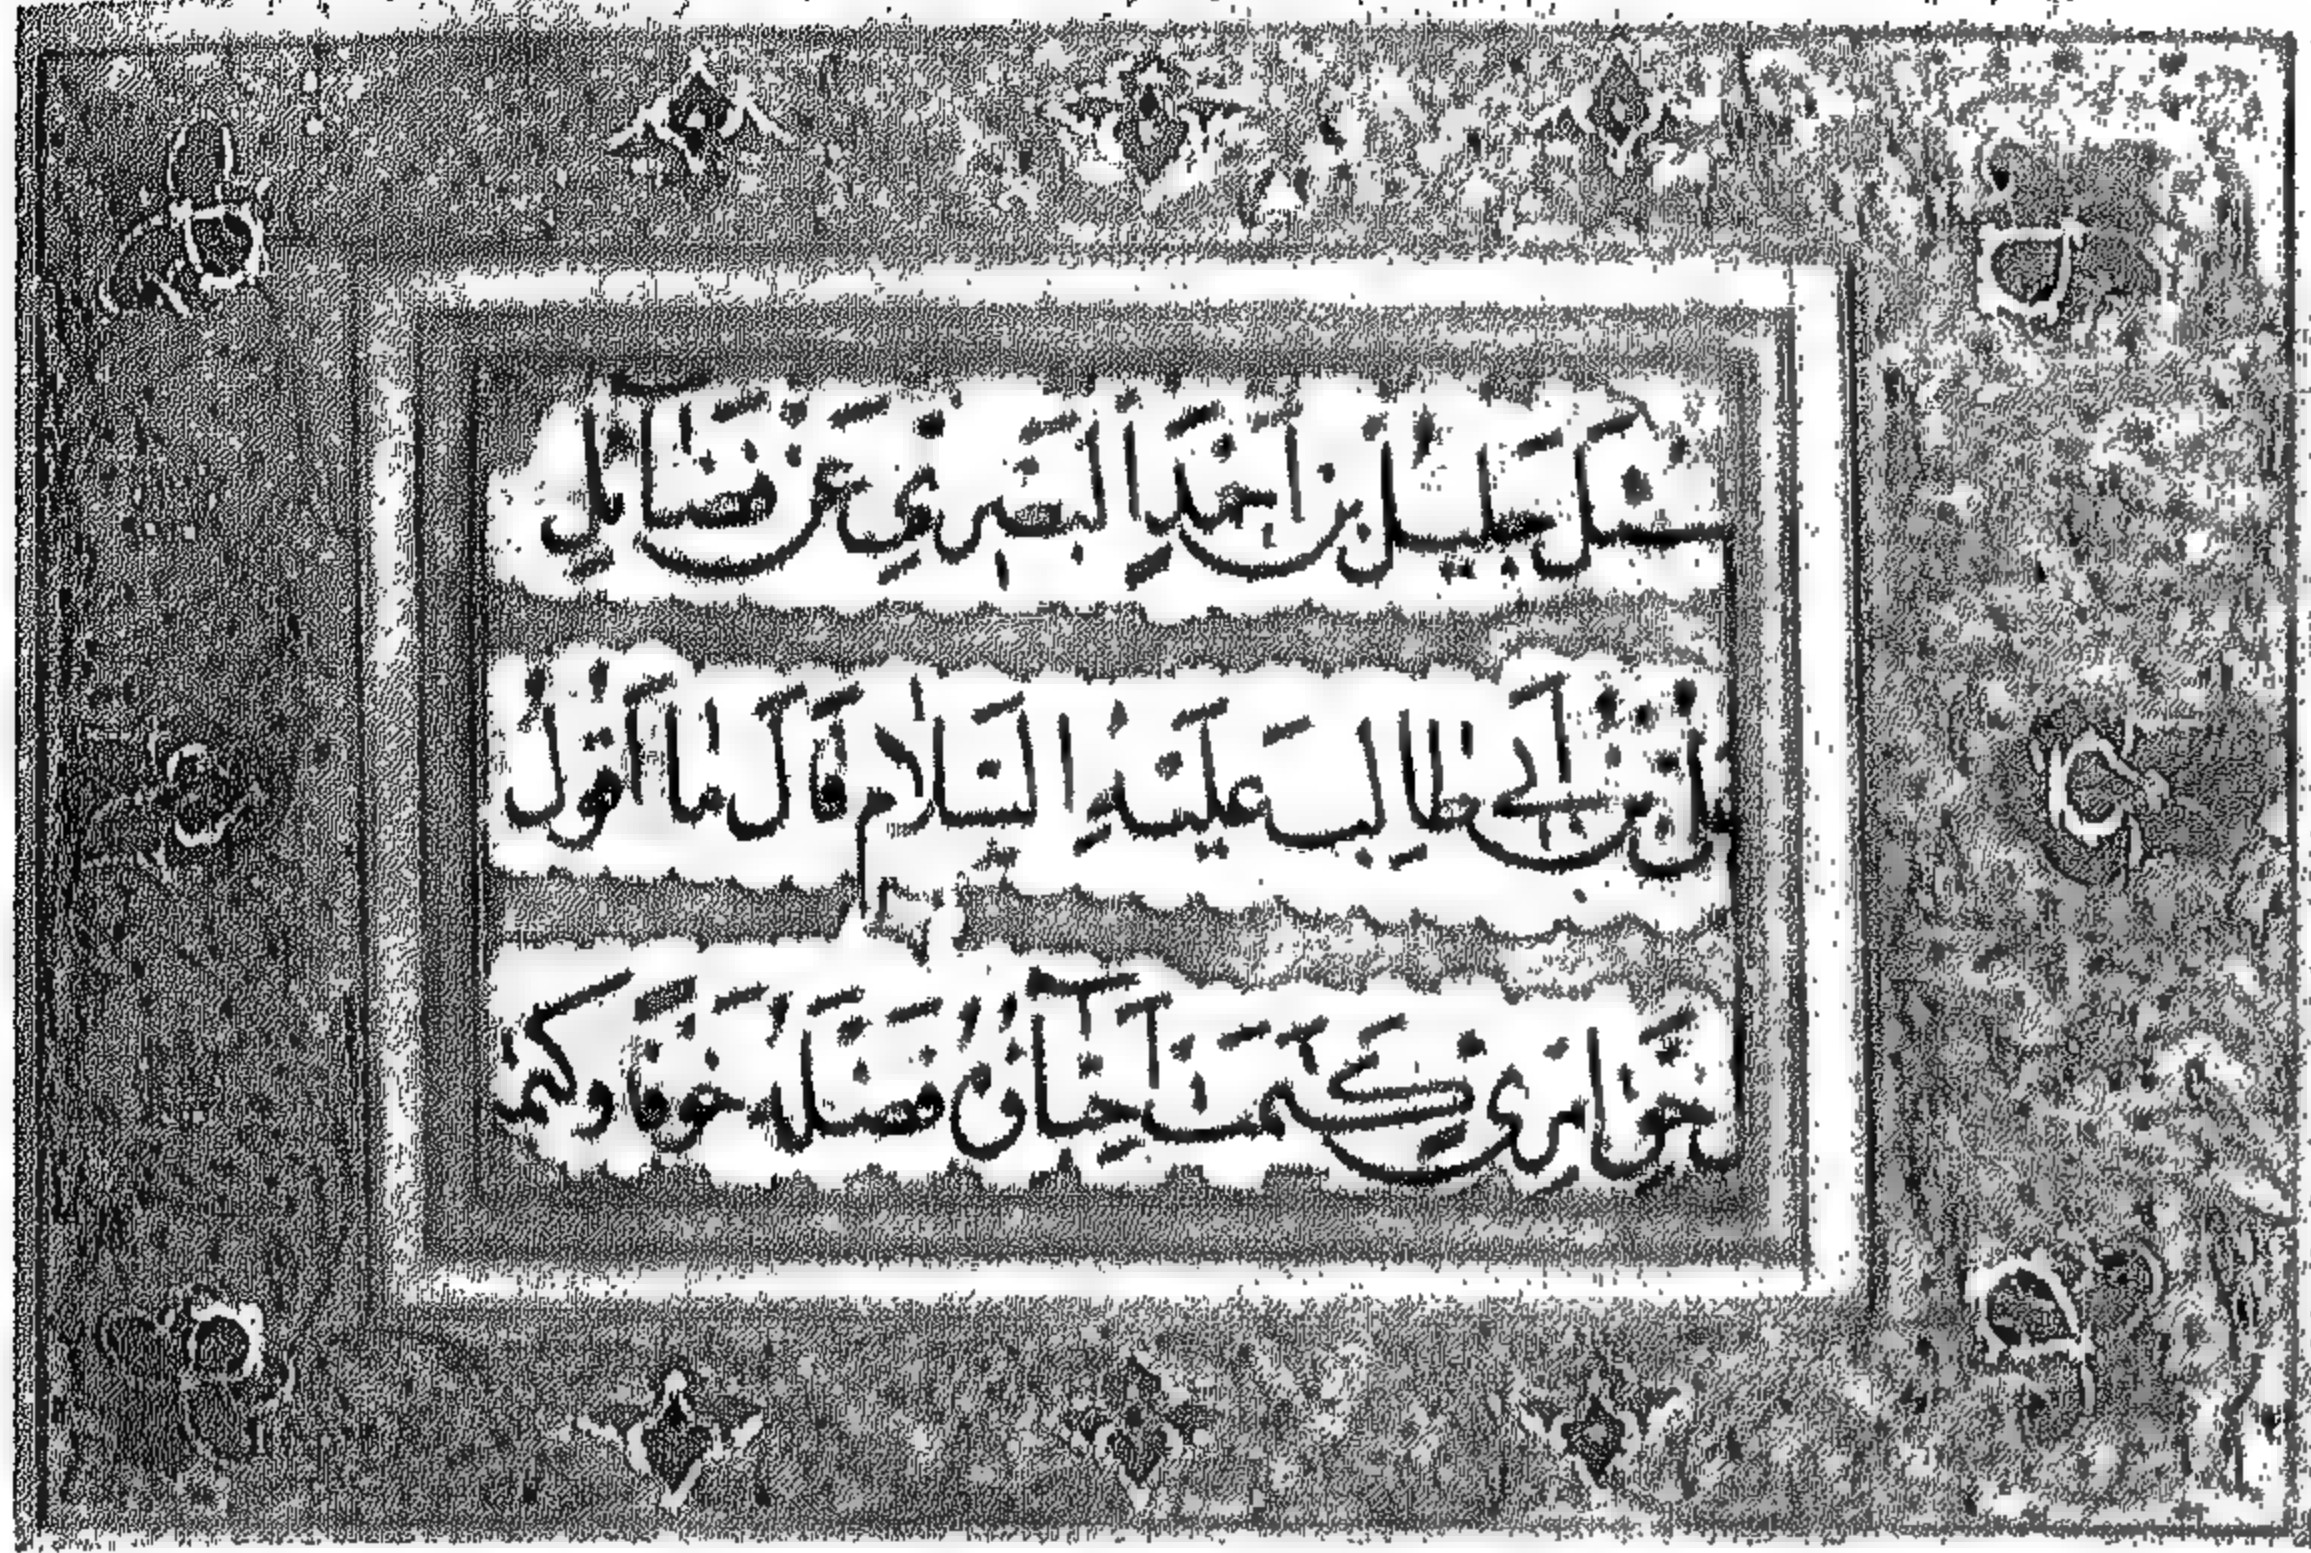 سئل خليل بن احمد البصري عن فضائل
علي بن ابي طالب عليه السلام قال ما اقول
امرئ كتمت فضله خوفا وكتم